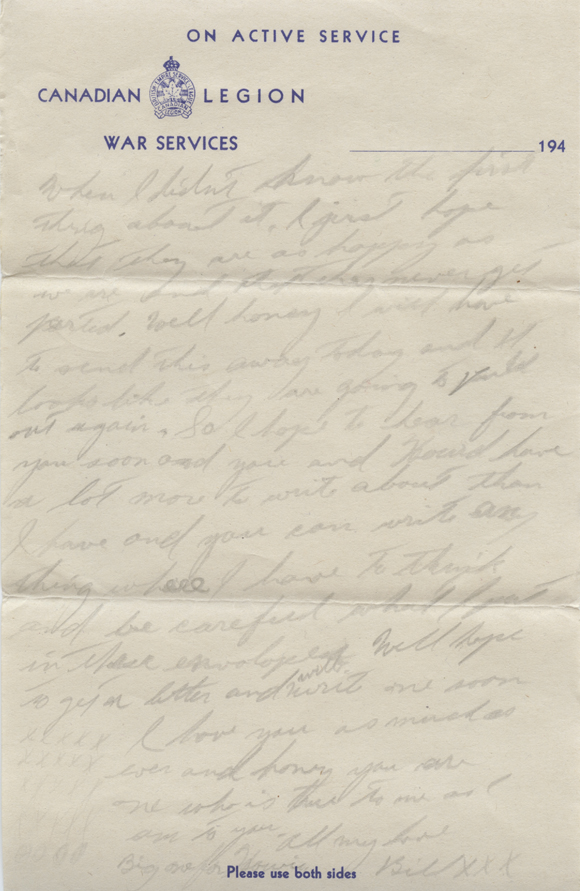 ON ACTIVE SERVICE
CANADIAN LEGION
WAR SERVICES
194
When I didn't know the first
thing about it. I just hope
that they are as happy as
we are and that they never get
parted. Well honey I will have
to send this away today and it
looks like they are going to pull
out again. So I hope to hear from
you soon and you and Howie have
a lot more to write about than
I have and you can write any
thing where I have to think
and be careful what I put
in these envolopes. Well hope
to get a letter and will write one soon
XXXXX I love you as much as
XXXXX ever and honey you are
one who is true to me as I
am to you. All my love
Big one for Howie Bill XXX
Please use both sides